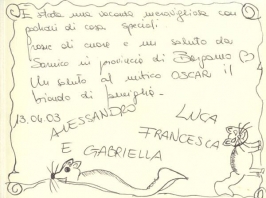 È stata una vacanza meravigliosa con
padroni di casa speciali
di cuore e un saluto da
Sarnico in provincia di Bergamo
Un saluto al mitico OSCAR il
di famiglia.
13.04.03
ALESSANDRO
LUCA
FRANCESCA
E GABRIELLA